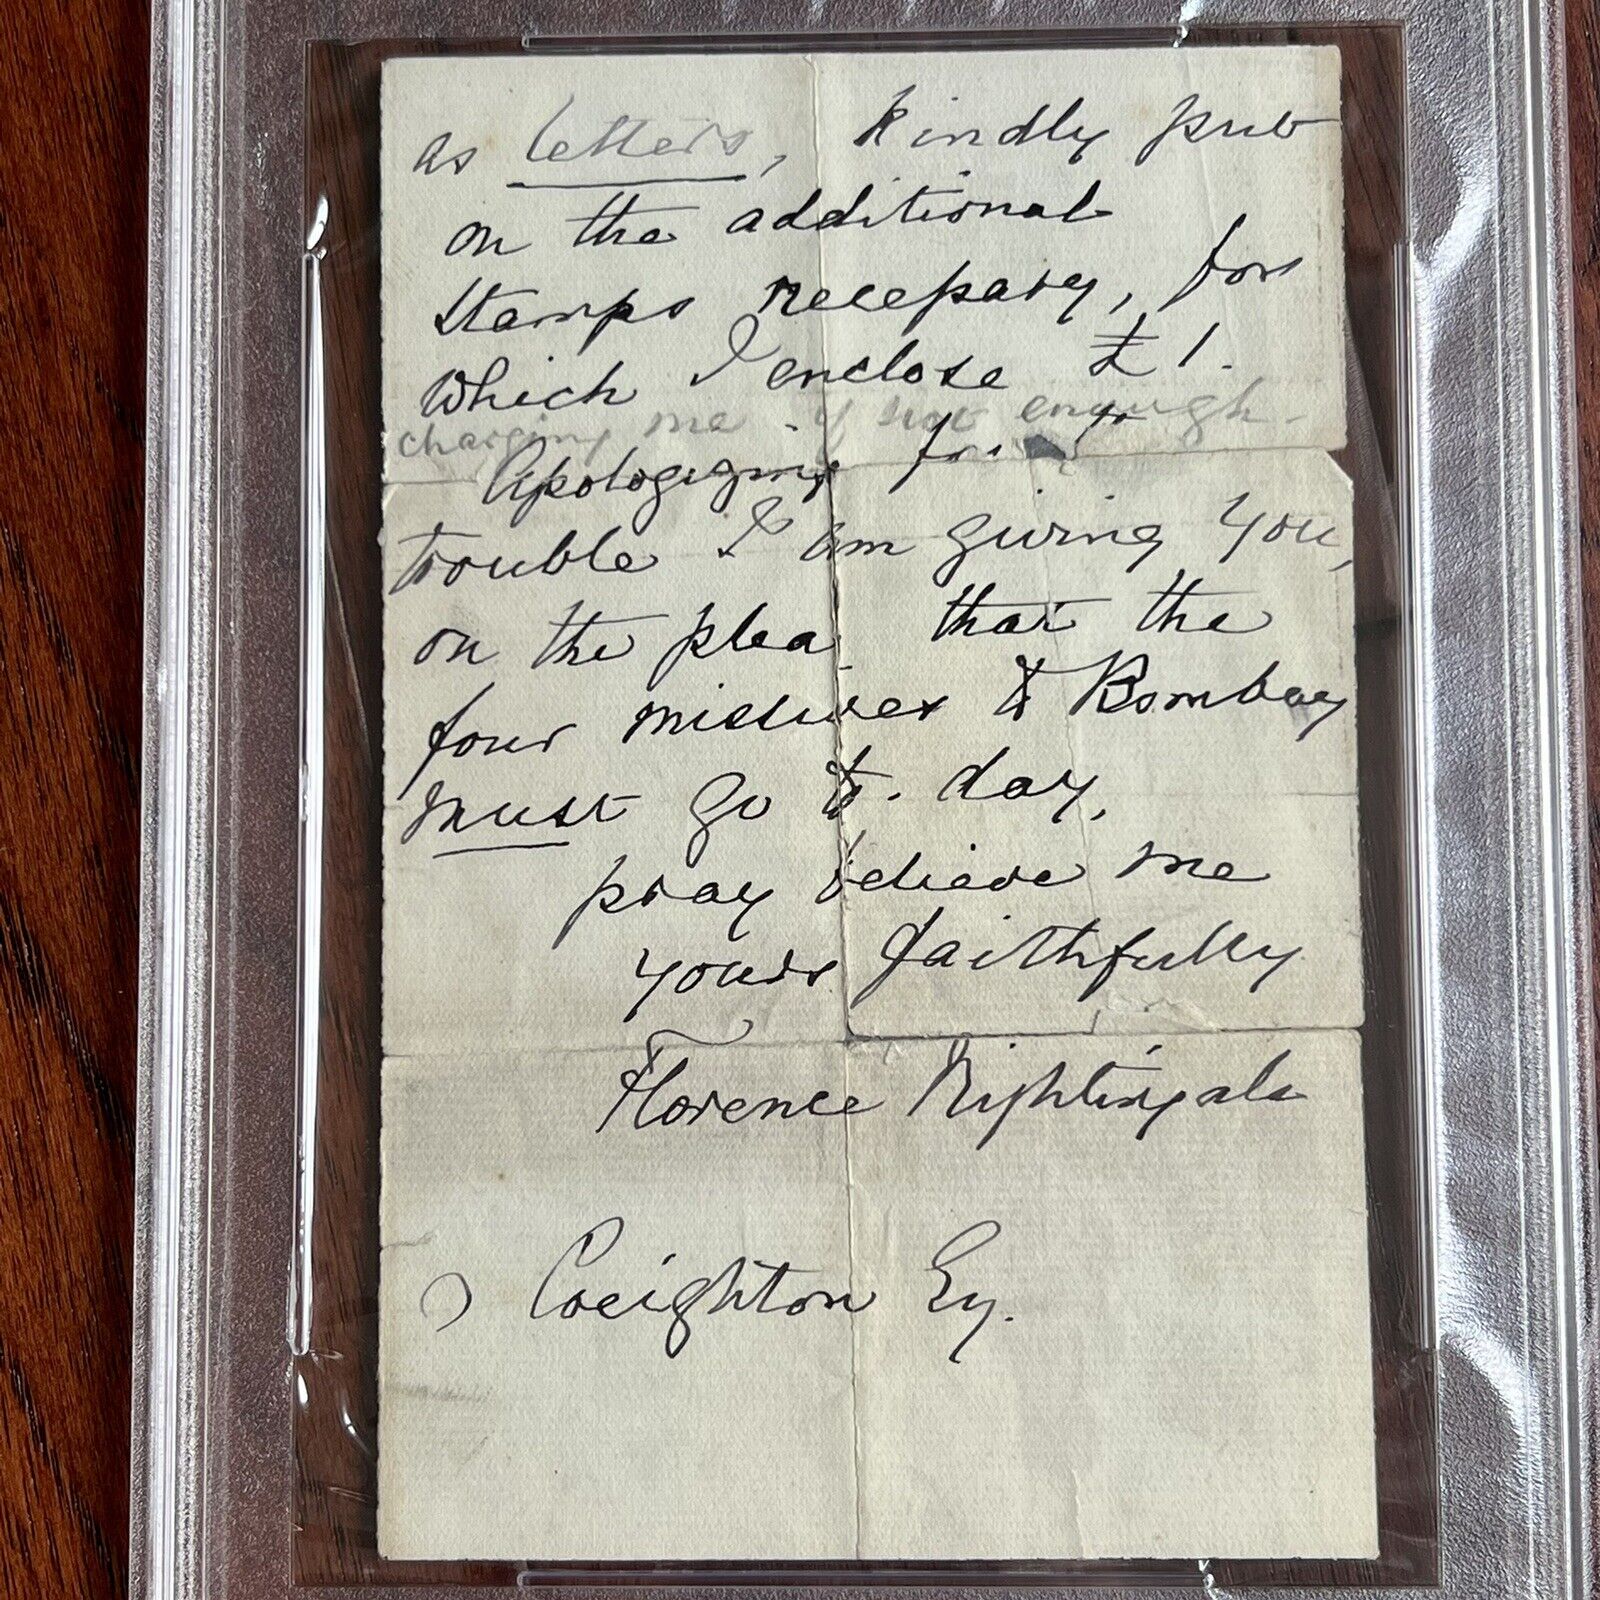 as letters, kindly put
on the additional
stamps necessary, for
which I enclose £1.
charging me if not enough.
Apologizing for
trouble I am giving you,
on the plea that the
four missives to Bombay
must go to-day,
pray believe me
yours faithfully
Florence Nightingale
Creighton Esq.